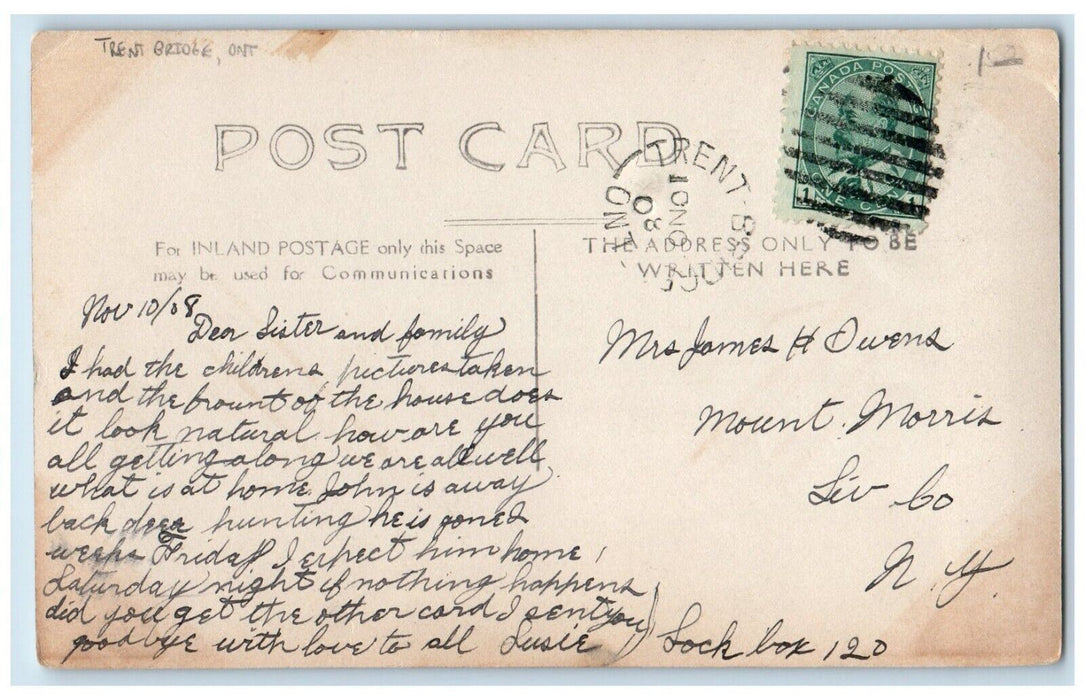 TRENT BRIDGE, ONT
12
POST CARD
CANADA POSTAGE
1 1
ONE CENT
TRENT BRIDGE
ONT
NO 10
08
For INLAND POSTAGE only this Space
may be used for Communications
THE ADDRESS ONLY TO BE
WRITTEN HERE
Nov 10/08
Dear Sister and family
I had the childrens pictures taken
and the frount of the house does
it look natural how are you
all getting along we are all well
what is at home John is away
back deer hunting he is gone 2
weeks Friday I expect him home
Saturday night if nothing happens
did you get the other card I sent you
good bye with love to all Susie
Mrs James H Owens
Mount Morris
Liv Co
N Y
Lock box 120